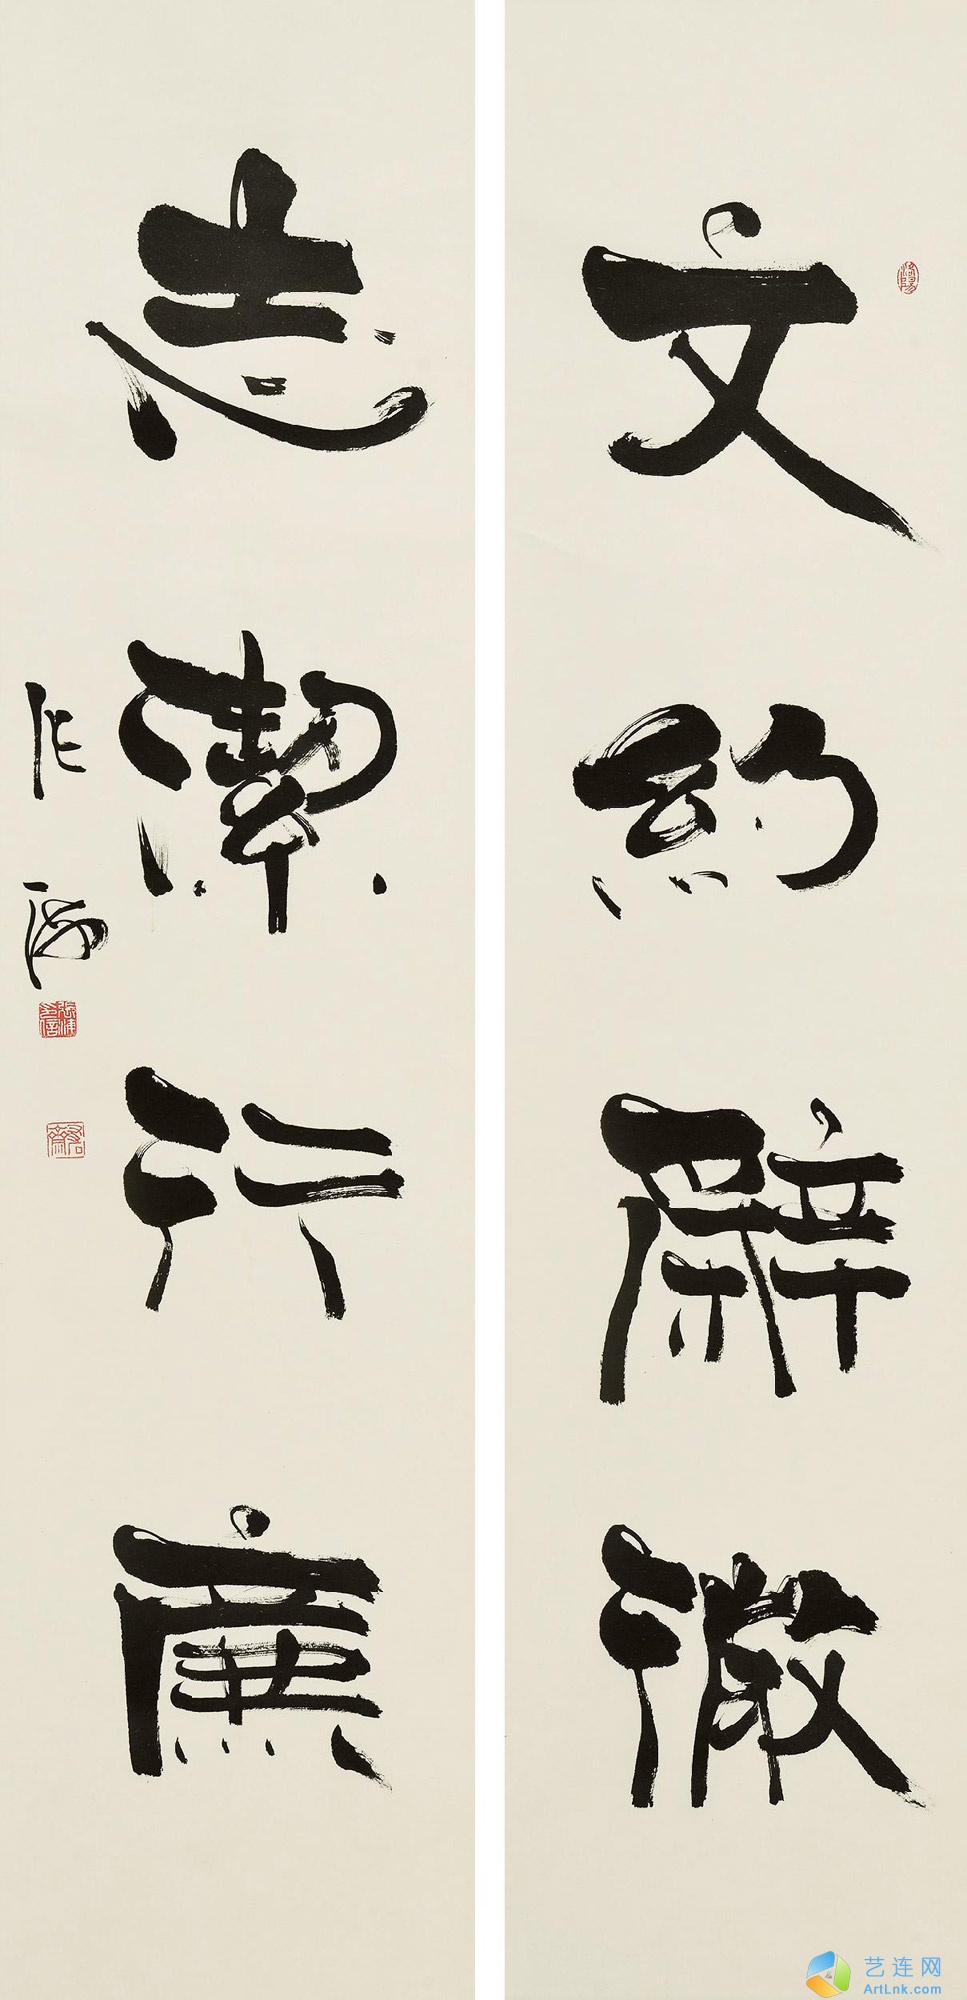 文約辭微
志潔行廉
张海
艺连网
ArtLnk.com